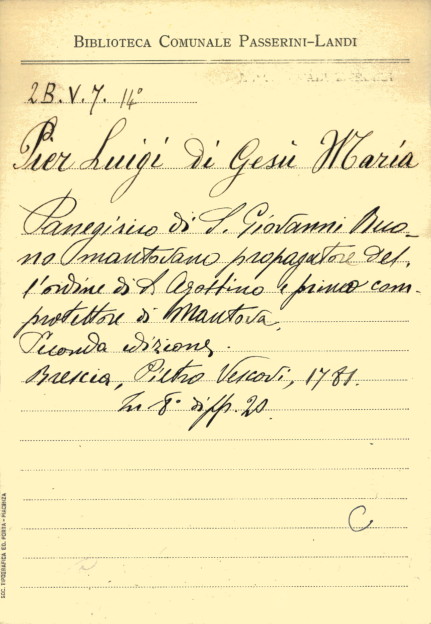 BIBLIOTECA COMUNALE PASSERINI-LANDI
2B.V.7. 14°
Pier Luigi di Gesù Maria
Panegirico di S. Giovanni Buo-
no mantovano propagatore del-
l'ordine di S. Agostino e primo com-
protettore di Mantova.
Seconda edizione.
Brescia, Pietro Vescovi, 1781.
In 8° di pp. 20.
C
SOC. TIPOGRAFICA ED. PORTA - PIACENZA